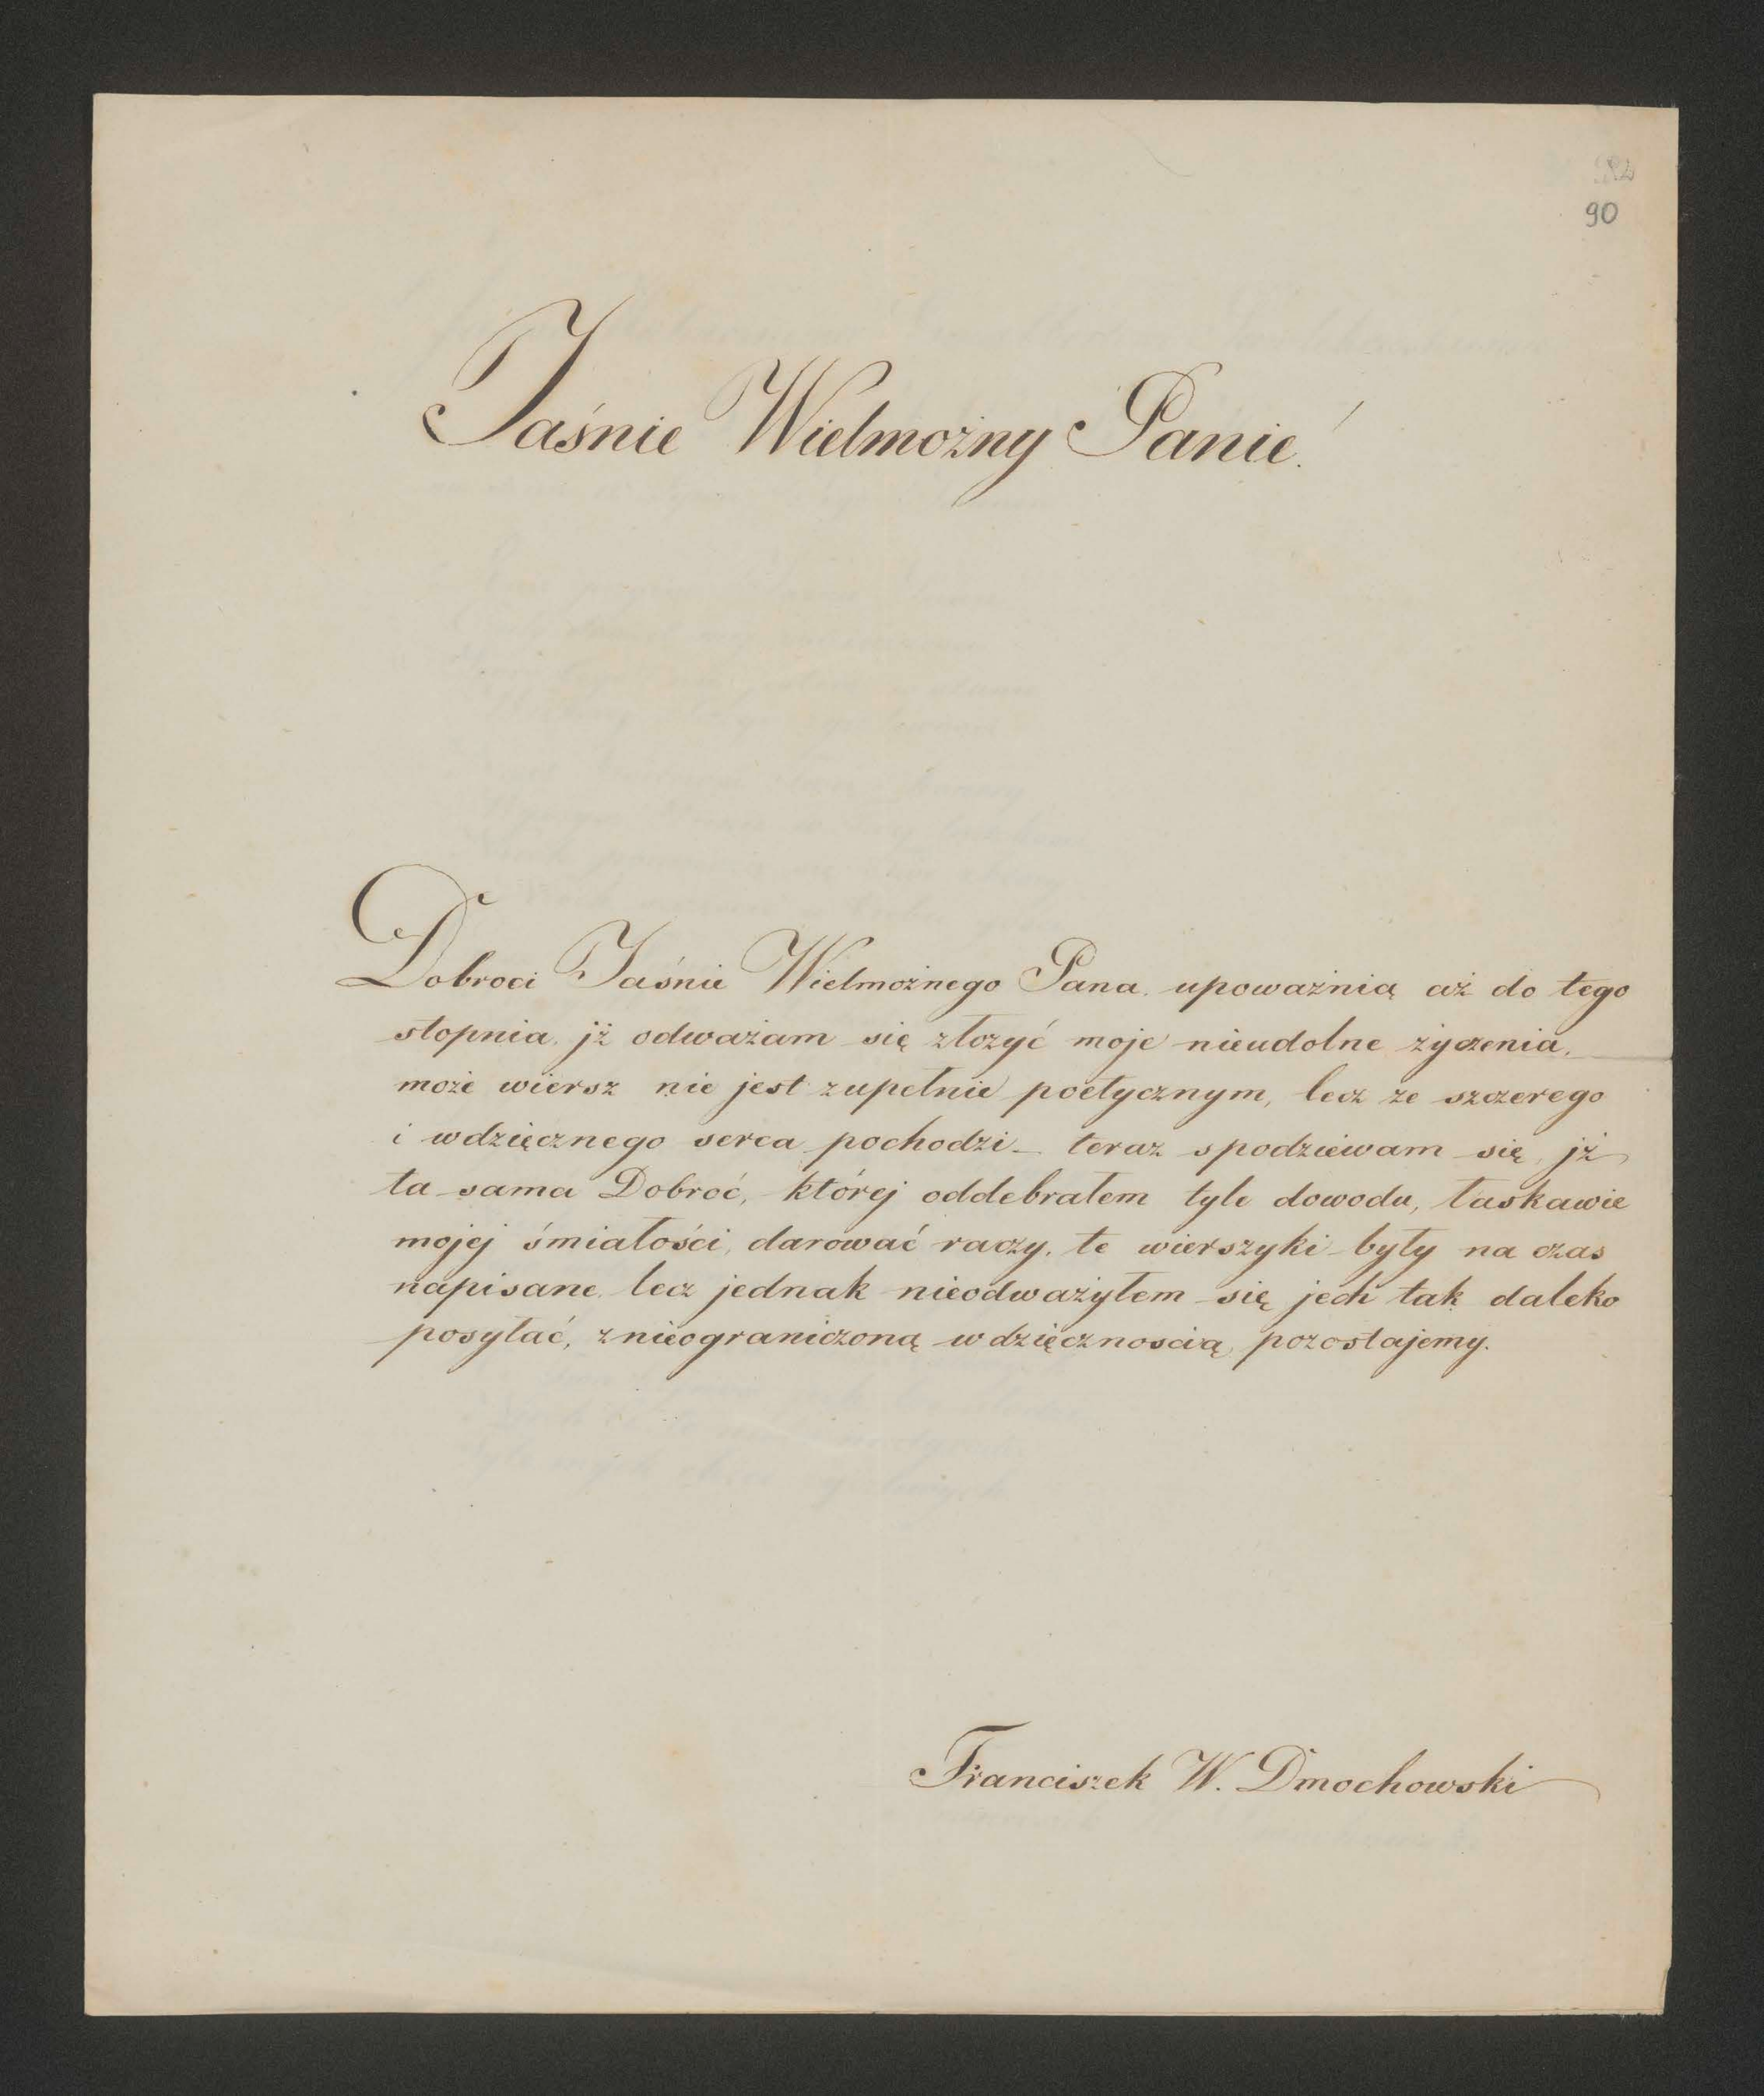 90
Jaśnie Wielmożny Panie!
Dobroci Jaśnie Wielmożnego Pana, upoważnią aż do tego
stopnia, jż odważam się złożyć moje nieudolne życzenia,
może wiersz nie jest zupełnie poetycznym, lecz ze szczerego
i wdzięcznego serca pochodzi_ teraz spodziewam się, jż
ta sama Dobroć, której oddebrałem tyle dowodu, łaskawie
mojej śmiałości, darować raczy, te wierszyki były na czas
napisane, lecz jednak nieodważyłem się jech tak daleko
posyłać, znieograniczoną wdzięcznoscią, pozostajemy.
Franciszek W. Dmochowski